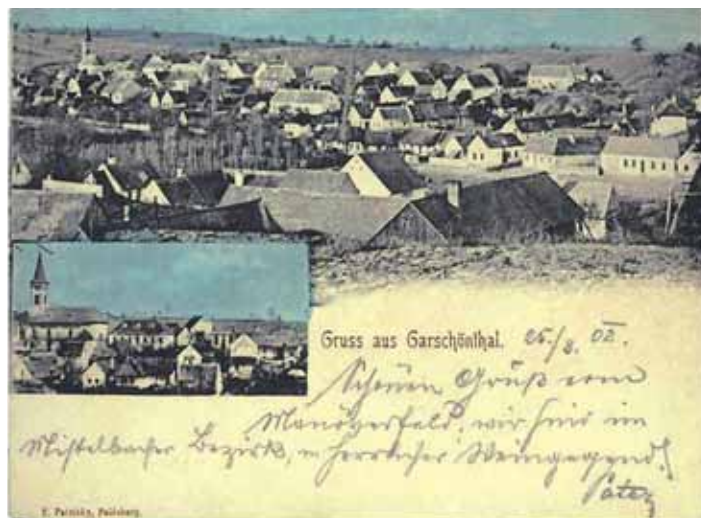 Gruss aus Garschönthal. 25./8. 02.
Schönen Gruß vom
Manöverfeld, wir sind im
Mistelbacher Bezirk, in herrlicher Weingegend!